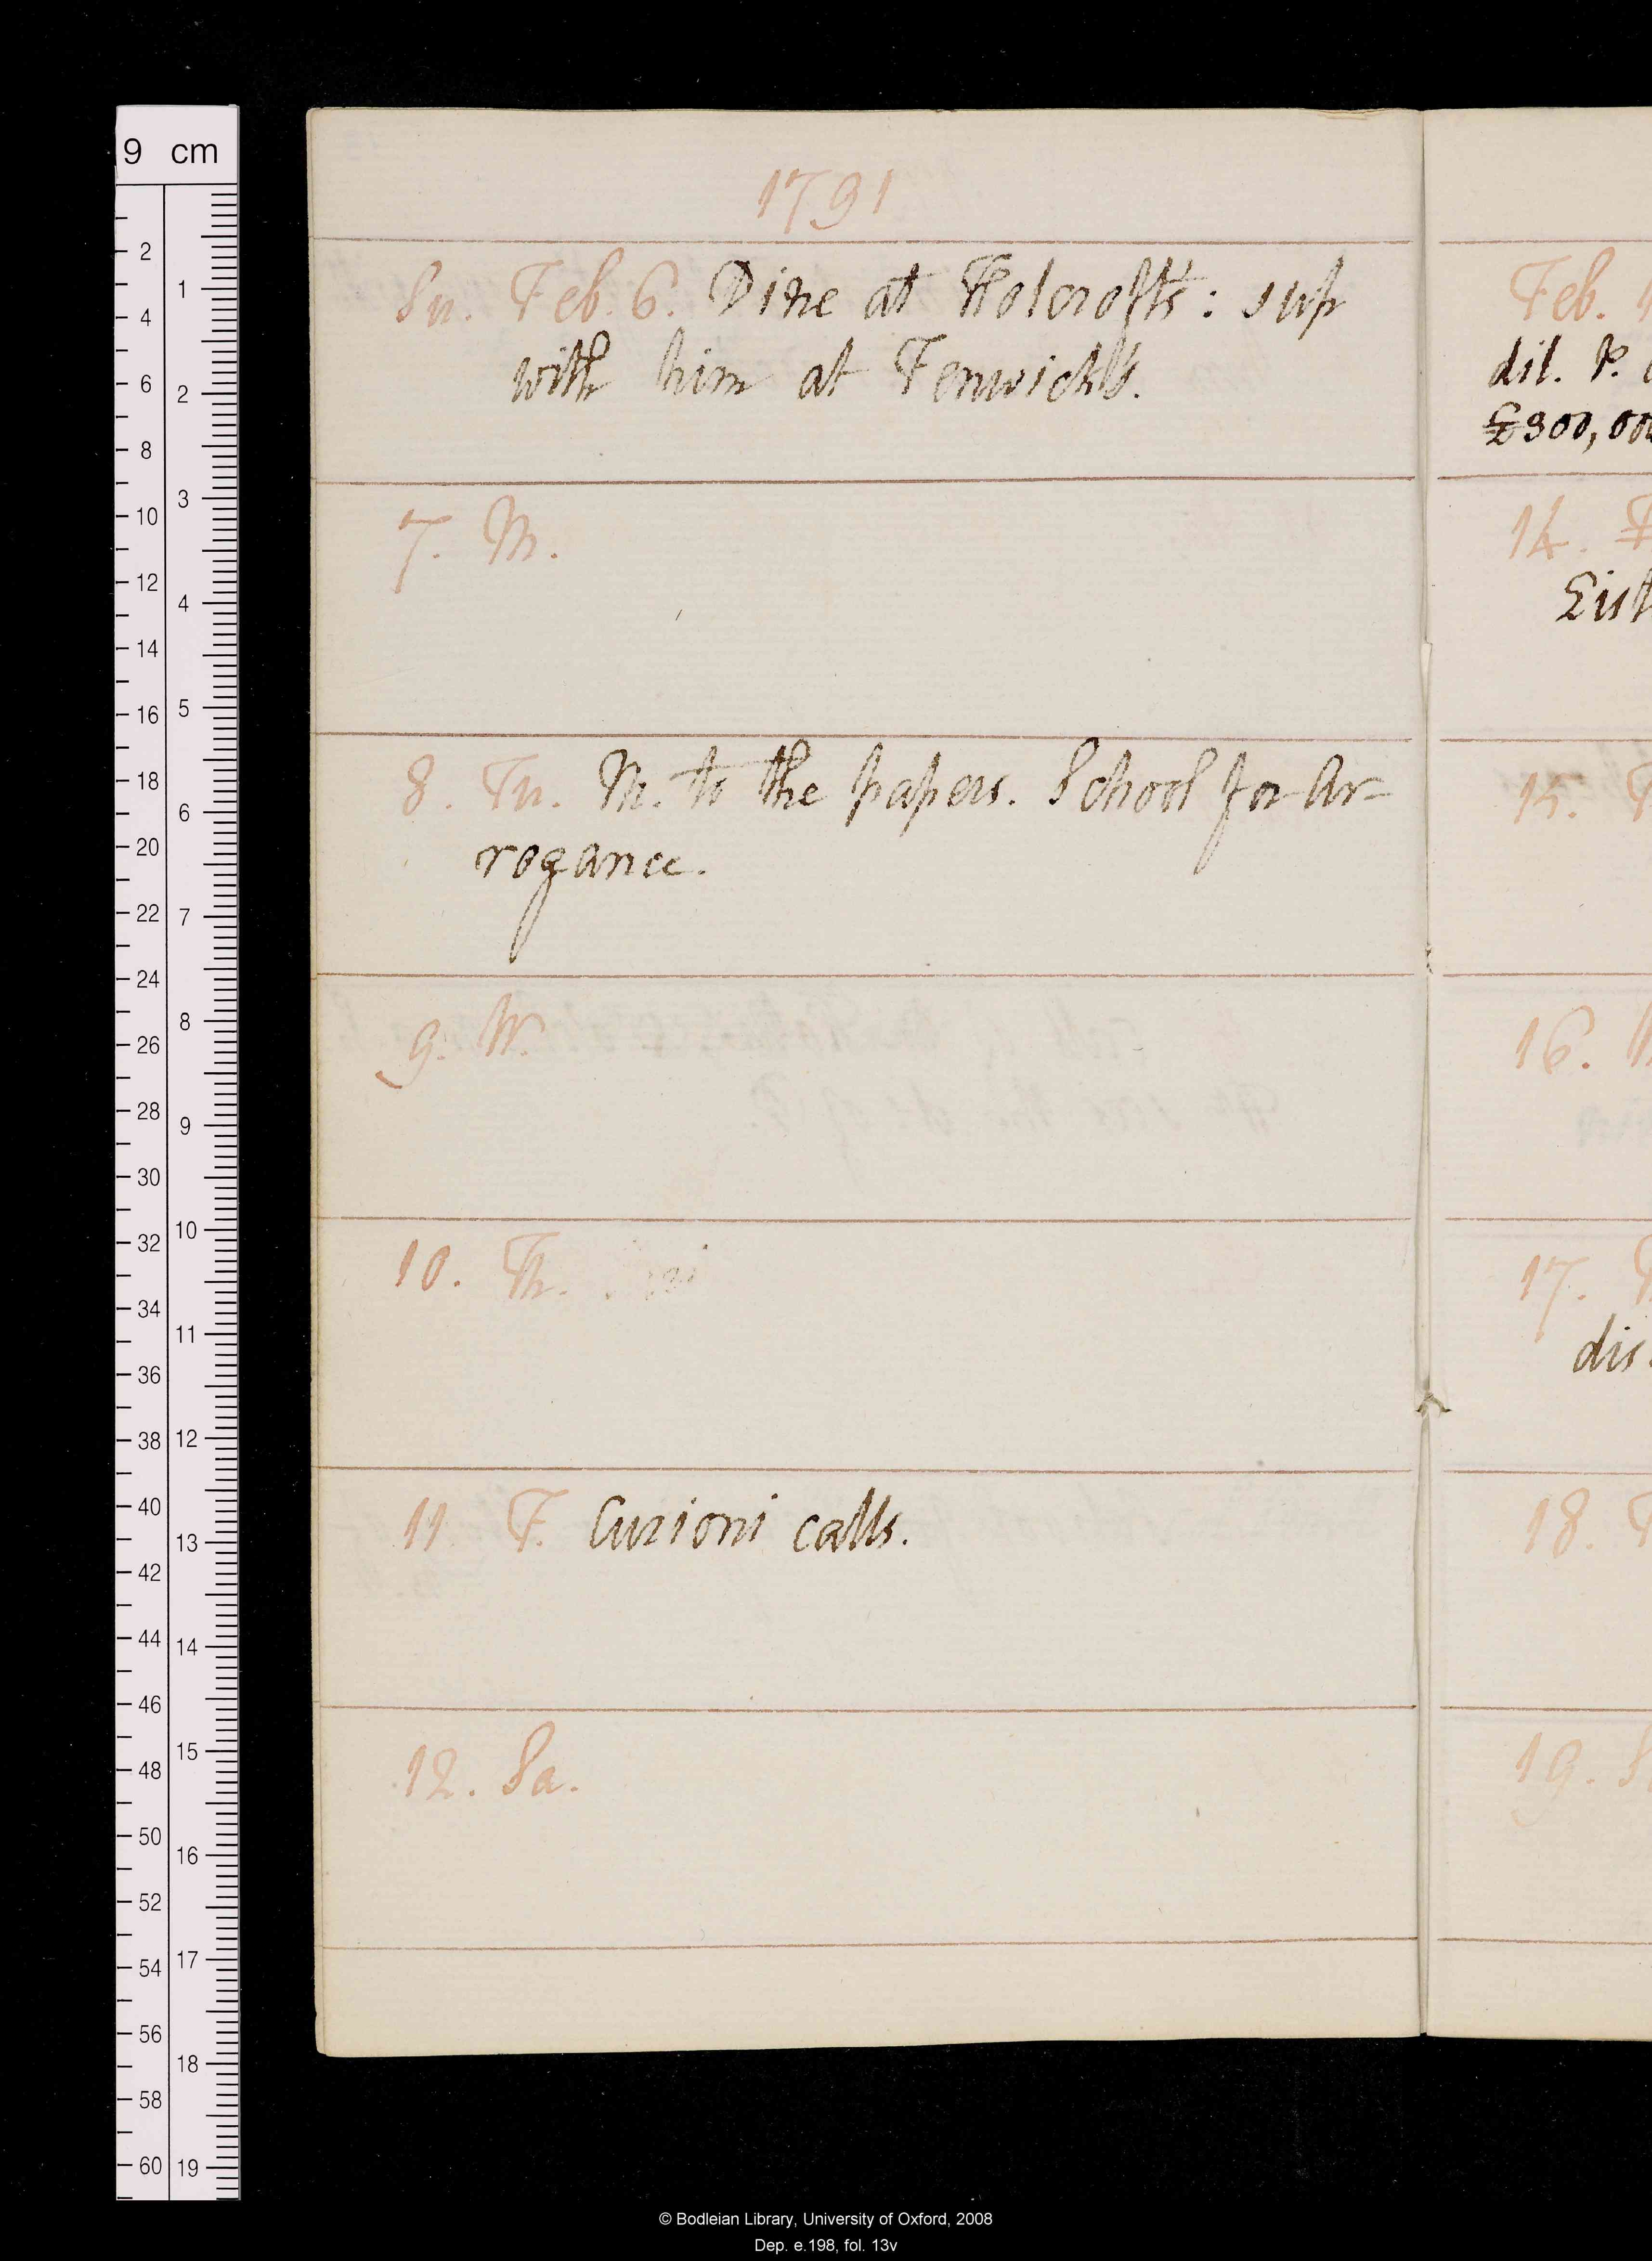 1791
Su. Feb. 6. Dine at Holcroft's: sup
with him at Fenwick's.
7. M.
8. Tu. M. to the papers. School for Ar-
rogance.
9. W.
10. Th.
11. F. Curioni calls.
12. Sa.
Feb. 1
dil. P.
£300,00
14.
List
15.
16.
17.
dis
18.
19.
9 cm
2
4
6
8
10
12
14
16
18
20
22
24
26
28
30
32
34
36
38
40
42
44
46
48
50
52
54
56
58
60
1
2
3
4
5
6
7
8
9
10
11
12
13
14
15
16
17
18
19
© Bodleian Library, University of Oxford, 2008
Dep. e.198, fol. 13v